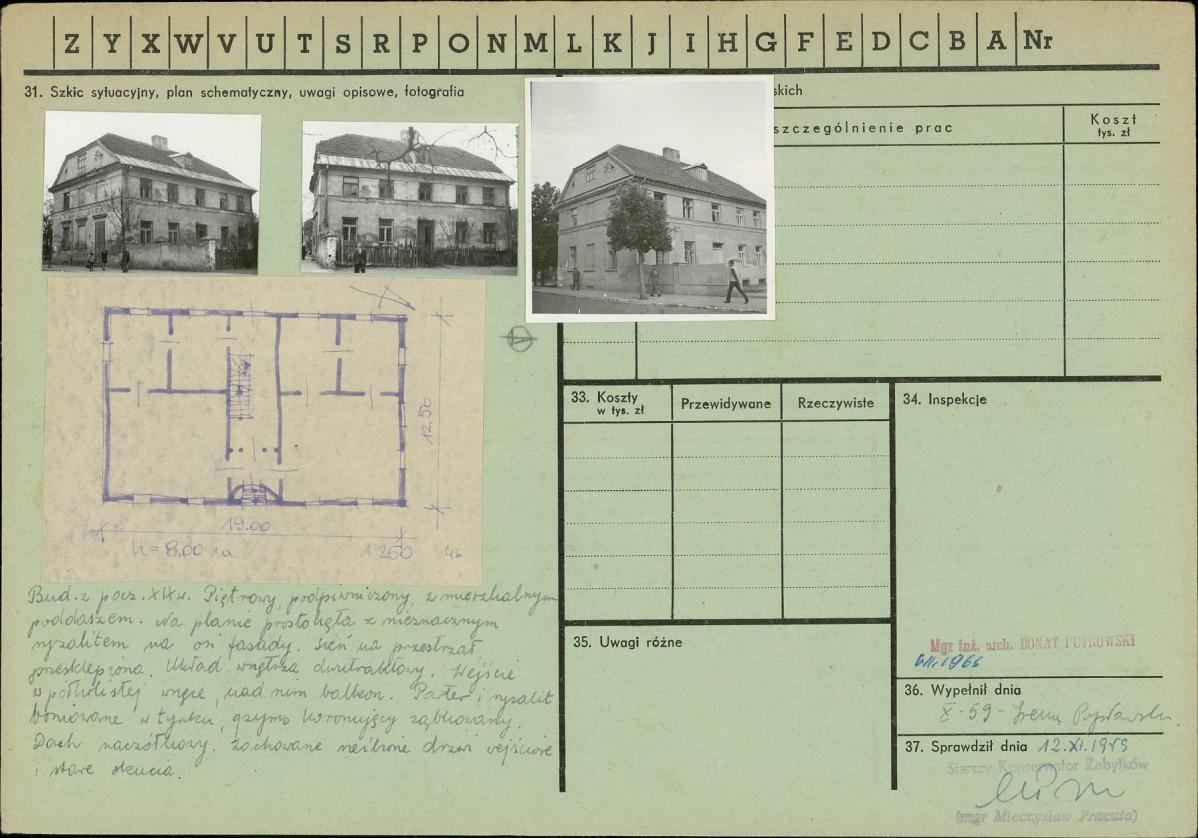 Z Y X W V U T S R P O N M L K J I H G F E D C B A Nr
31. Szkic sytuacyjny, plan schematyczny, uwagi opisowe, fotografia
skich
szczególnienie prac
Koszt
tys. zł
12,50
19.00
h = 8,00 m
1:250
Bud. z pocz. XIX w. Piętrowy, podpiwniczony, z mieszkalnym
poddaszem. Na planie prostokąta z nieznacznym
ryzalitem na osi fasady. Sień na przestrzał
przesklepiona. Układ wnętrza dwutraktowy. Wejście
w półkolistej wnęce, nad nim balkon. Parter i ryzalit
boniowane w tynku, gzyms koronujący ząbkowany.
Dach naczółkowy. Zachowane drzwi wejściowe
i stare okucia.
33. Koszty
w tys. zł
Przewidywane
Rzeczywiste
34. Inspekcje
35. Uwagi różne
Mgr inż. arch. DONAT PUTKOWSKI
1966
36. Wypełnił dnia
X-59 - Irena
37. Sprawdził dnia 12.XI.1959
Starszy Konserwator Zabytków
(mgr Mieczysław Pracuta)